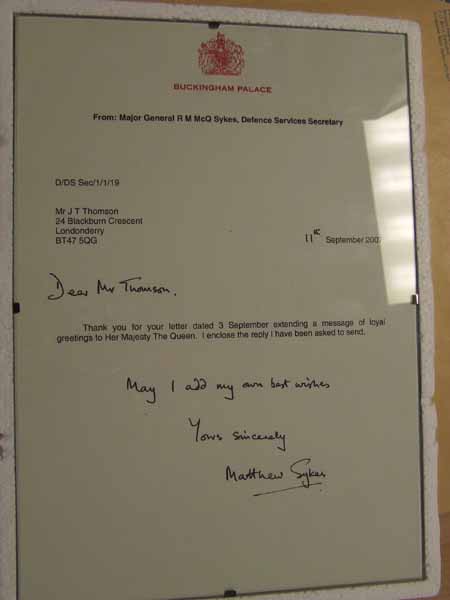 BUCKINGHAM PALACE
From: Major General R M McQ Sykes, Defence Services Secretary
D/DS Sec/1/1/19
Mr J T Thomson
24 Blackburn Crescent
Londonderry
BT47 5QG
11th September 200
Dear Mr Thomson,
Thank you for your letter dated 3 September extending a message of loyal
greetings to Her Majesty The Queen. I enclose the reply I have been asked to send.
May I add my own best wishes
Yours sincerely
Matthew Sykes